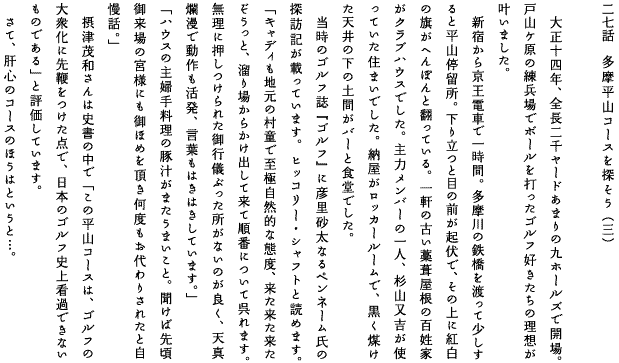 二七話　多摩平山コースを探そう（三）
大正十四年、全長二千ヤードあまりの九ホールズで開場。
戸山ヶ原の練兵場でボールを打ったゴルフ好きたちの理想が
叶いました。
新宿から京王電車で一時間。多摩川の鉄橋を渡って少しす
ると平山停留所。下り立つと目の前が起伏で、その上に紅白
の旗がへんぽんと翻っている。一軒の古い藁葺屋根の百姓家
がクラブハウスでした。主力メンバーの一人、杉山又吉が使
っていた住まいでした。納屋がロッカールームで、黒く煤け
た天井の下の土間がバーと食堂でした。
当時のゴルフ誌『ゴルフ』に彦里砂太なるペンネーム氏の
探訪記が載っています。ヒッコリー・シャフトと読めます。
「キャディも地元の村童で至極自然的な態度、来た来た来た
ぞうっと、溜り場からかけ出して来て順番について呉れます。
無理に押しつけられた御行儀ぶった所がないのが良く、天真
爛漫で動作も活発、言葉もはきはきしています。」
「ハウスの主婦手料理の豚汁がまたうまいこと。聞けば先頃
御来場の宮様にも御ほめを頂き何度もお代わりされたと自
慢話。」
摂津茂和さんは史書の中で「この平山コースは、ゴルフの
大衆化に先鞭をつけた点で、日本のゴルフ史上看過できない
ものである」と評価しています。
さて、肝心のコースのほうはというと…。